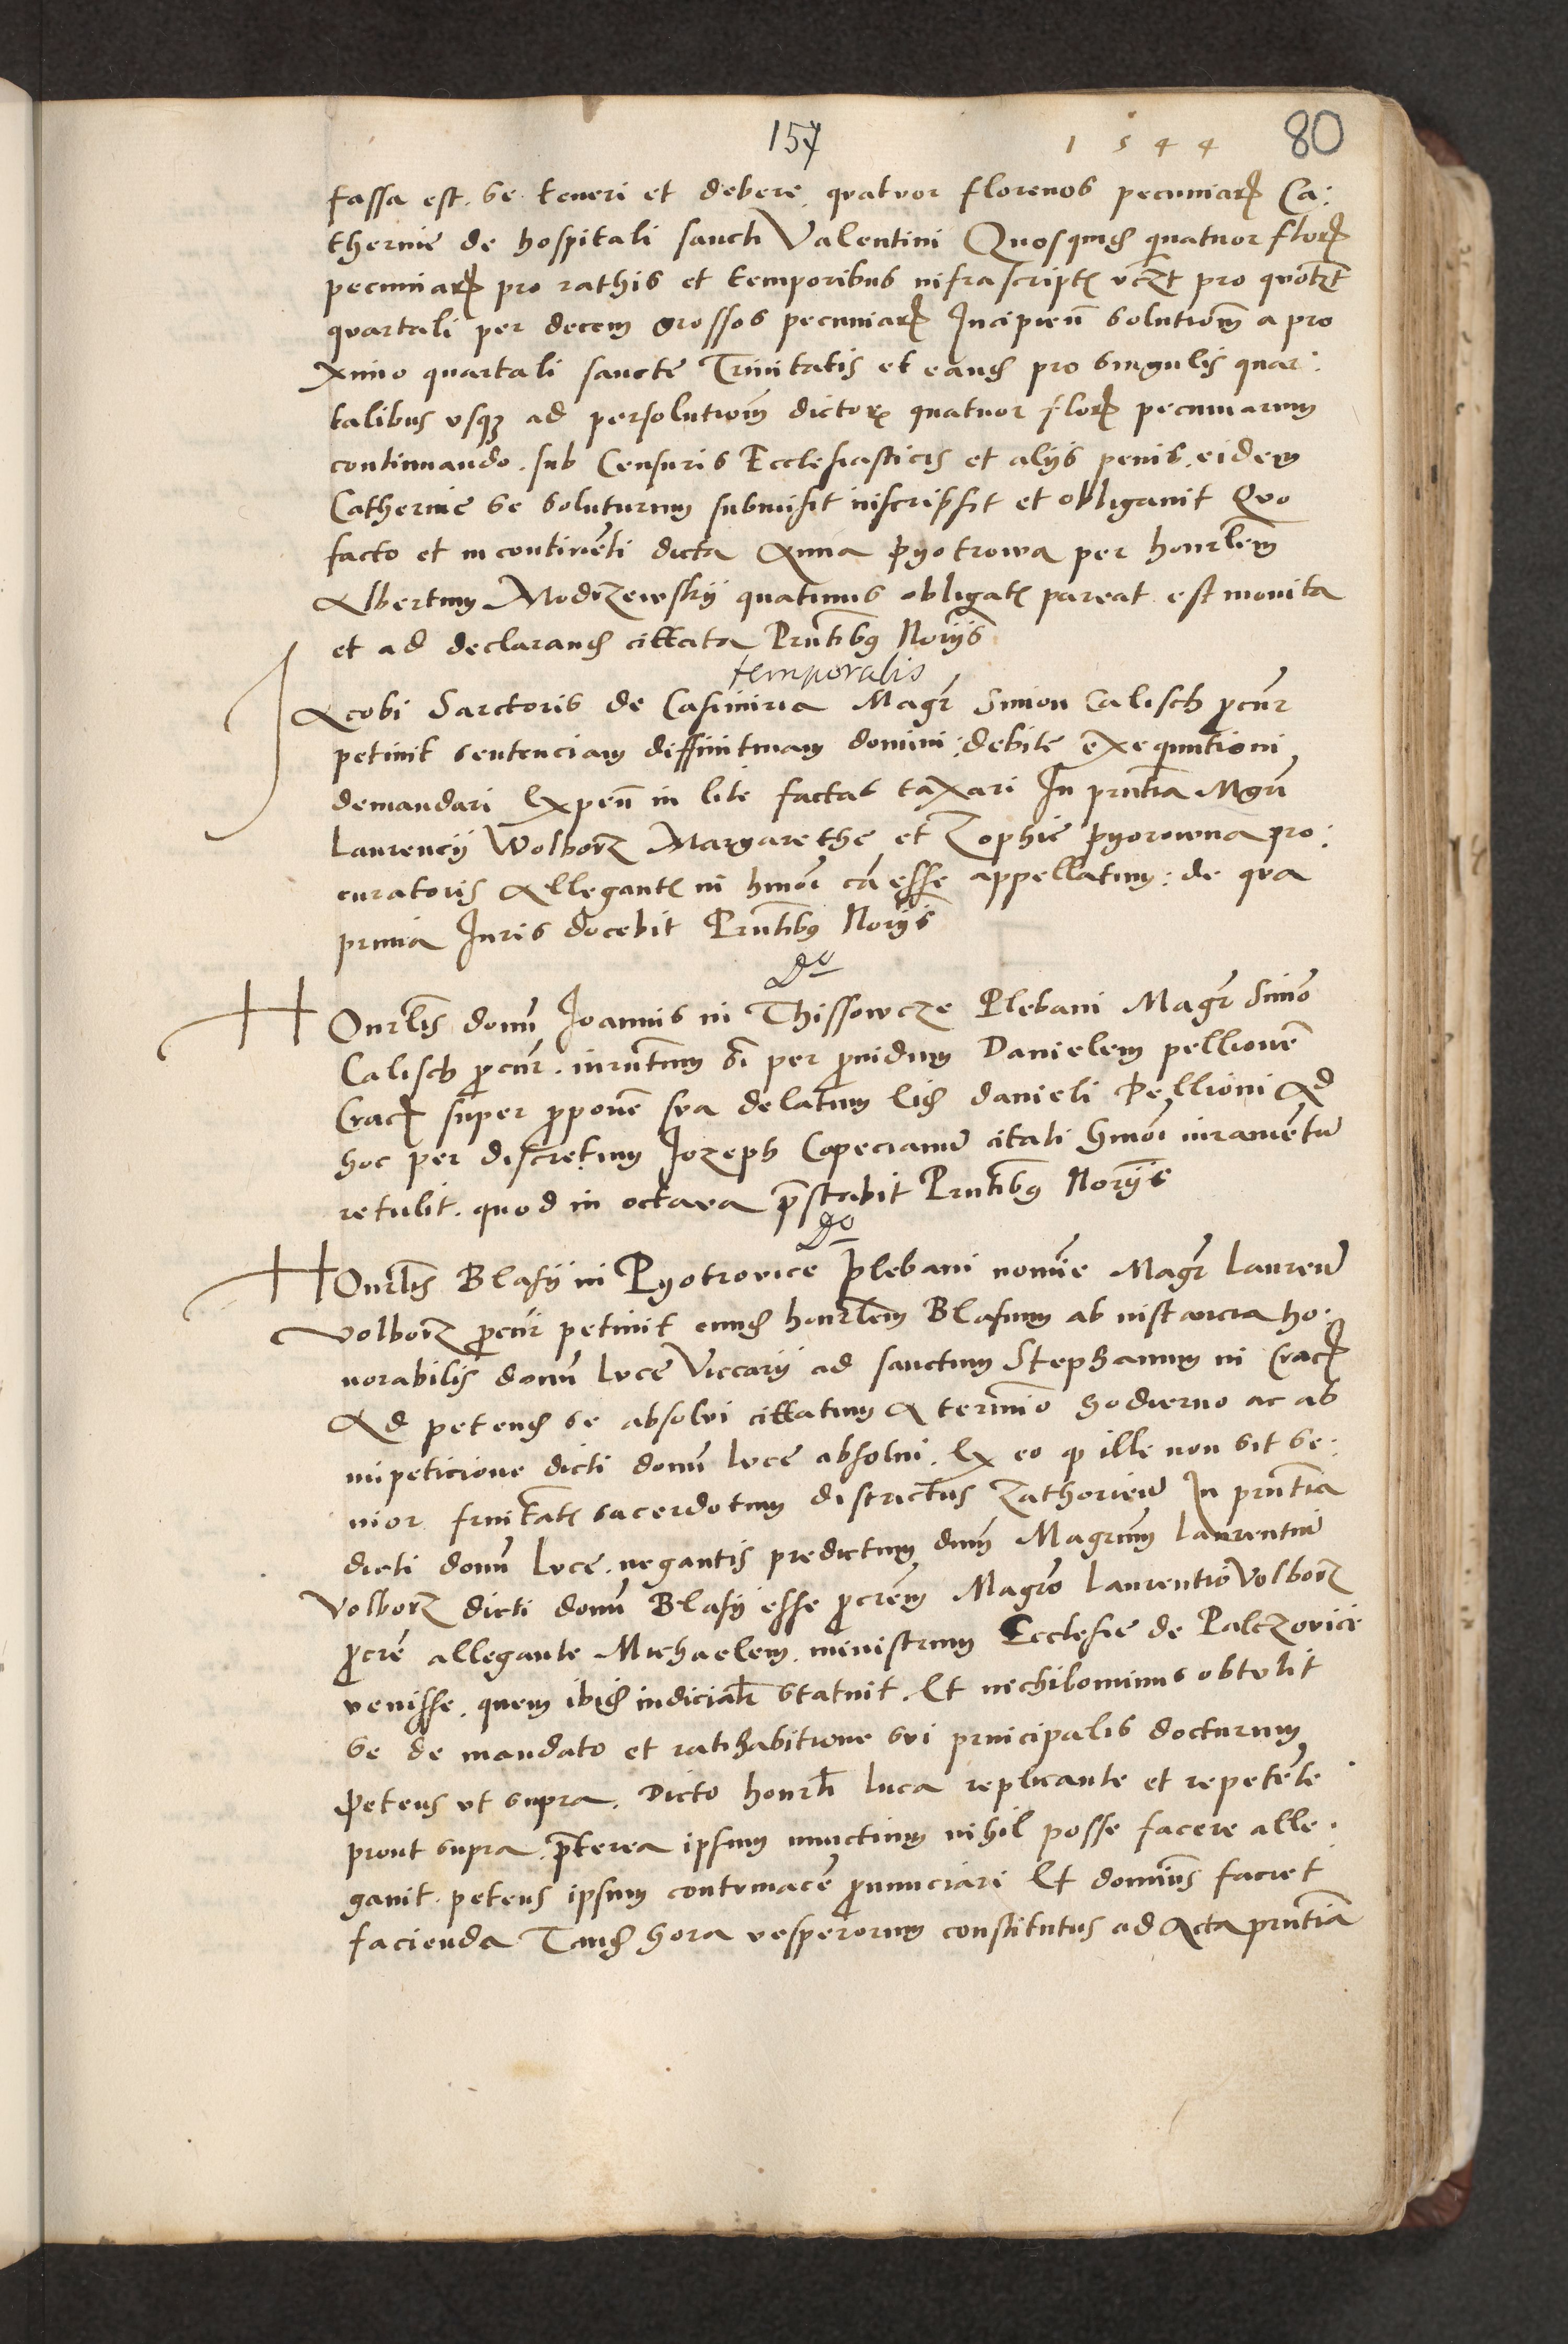 157 1544 80
fassa est se teneri et debere quatuor florenos pecuniarꝝ Ca:
therine de hospitali sancti Valentini Quosquid quatuor florꝝ
pecuniarꝝ pro rathis et temporibus infrascriptꝭ vczt pro quotꝫt
quartali per decem grossos pecuniarꝝ Incipien̄ solutionē a pro
ximo quartali sancte Trinitatis et eand pro singulis quar:
talibus usqꝫ ad persolutionē dictorꝝ quatuor florꝝ pecuniarum
continuando. sub Censuris Ecclesiasticis et alijs penis. eidem
Catherine se soluturum submisit inscripsit et obligauit Quo
facto et in continēti dicta Anna Pyotrowa per honrlem
Albertum Modrzewskij quatinus obligatꝭ pareat est monita
et ad declarand cittata Prntibꝰ Norijs
temporalis
Jacobi Sarctoris de Casimiria Magr̄ Simon Calisch ꝓcur̄
petiuit sentenciam diffinitiuam domini: debite exequutioni
demandari Expen̄ in lite factas taxari In prntia Mgri
Laurencij Wolborz Margarethe et Zophie Pyorowna pro:
curatoris Allegantꝭ in hmōi cā esse appellatum: de qua
prima Juris docebit Prntibꝰ Norijs
Do
Honrlis domī Joannis in Thissowcze Plebani Magr̄ Simō
Calisch ꝓcur̄. iurntum sī per ꝓuidum Danielem pellionē
Cracꝝ super ꝓponē sua delatum licꝫ danieli Pellioni Ad
hoc per discretum Jozeph Copecianū citati hmōi iuramētū
retulit. quod in octaua p̄stabit Prntibꝰ Norijs
Do
Honrlis Blasij in Pyotrovice Plebani nomīe Magr̄ Lauren̄
Volborz ꝓcur̄ petiuit eund honrlem Blasium ab instancia ho:
norabilis domī Luce Viccarij ad sanctum Stephanum in Cracꝝ
Ad petend se absolui cittatum A termino hodierno ac ab
impeticione dicti domī Luce absolui. Ex eo ꝙ ille non sit se:
nior fruitatꝭ sacerdotum districtus Zathorien̄ In prntia
dicti domī Luce. negantis predictum dnm Magrum Laurentiū
Volborz dicti domī Blasij esse ꝓcrem Magrō Laurentio Volborz
ꝓcrē allegante Michaelem. ministrum Ecclesie de Palczovice
venisse. quem ibid iudicialr̄ statuit. Et nichilominus obtulit
se de mandato et ratihabitione sui principalis docturum
Petens ut supra. Dicto honrli Luca replicante et repetēte
prout supra. p̄terea ipsum nunctium nihil posse facere alle:
gauit. petens ipsum contumacē ꝓnunciari Et dominus faceret
facienda Tand hora vesperorum constitutus ad Acta prntiā